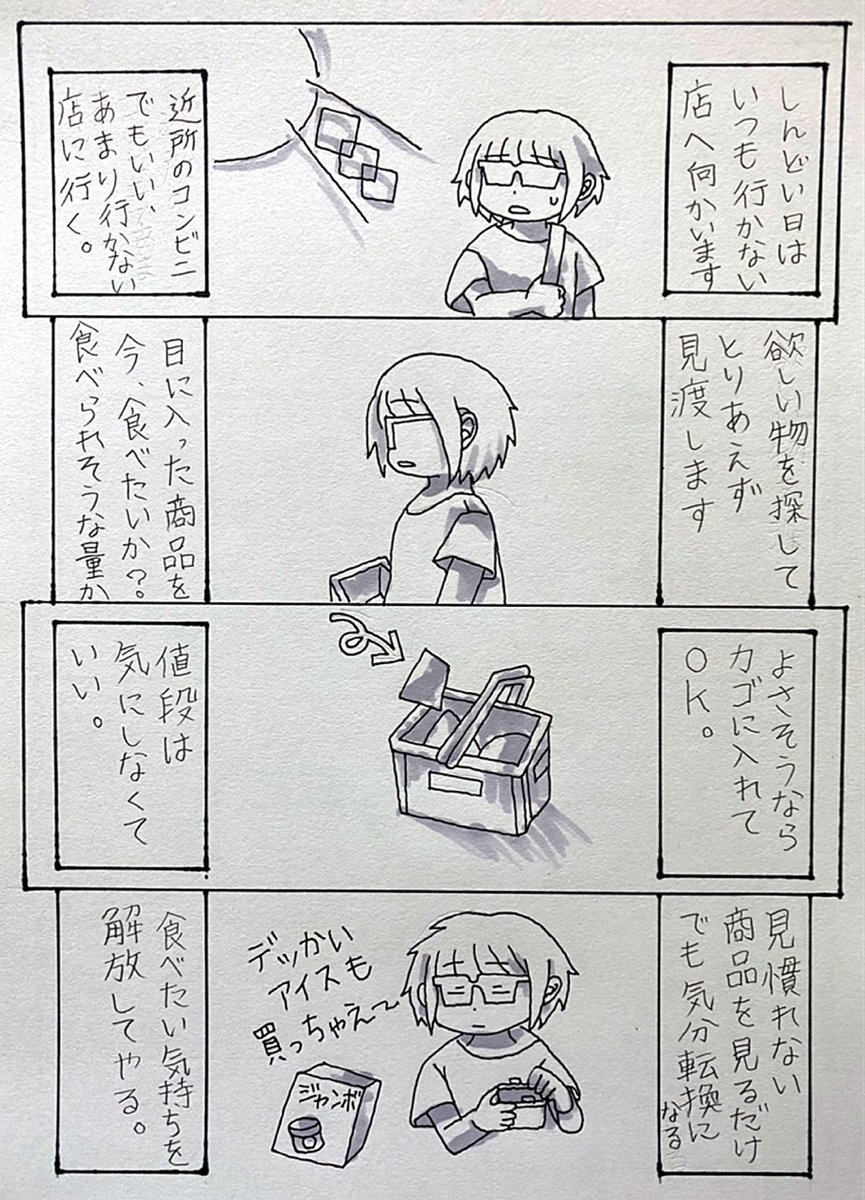 しんどい日は
いつも行かない
店へ向かいます
近所のコンビニ
でもいい、
あまり行かない
店に行く。
欲しい物を探して
とりあえず
見渡します
目に入った商品を
今、食べたいか?
食べられそうな量か
よさそうなら
カゴに入れて
OK。
値段は
気にしなくて
いい。
見慣れない
商品を見るだけ
でも気分転換に
なる
デッかい
アイスも
買っちゃえ〜
ジャンボ
食べたい気持ちを
解放してやる。